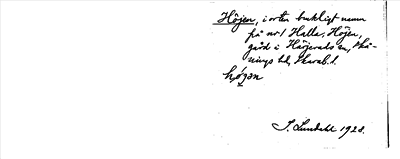 Höjen, i orten brukligt namn
på nr 1 Halla, Höjen,
gård i Härjevads sn, Skå-
nings hd, Skarab. l.
hǫ́gən
I. Lundahl 1928.